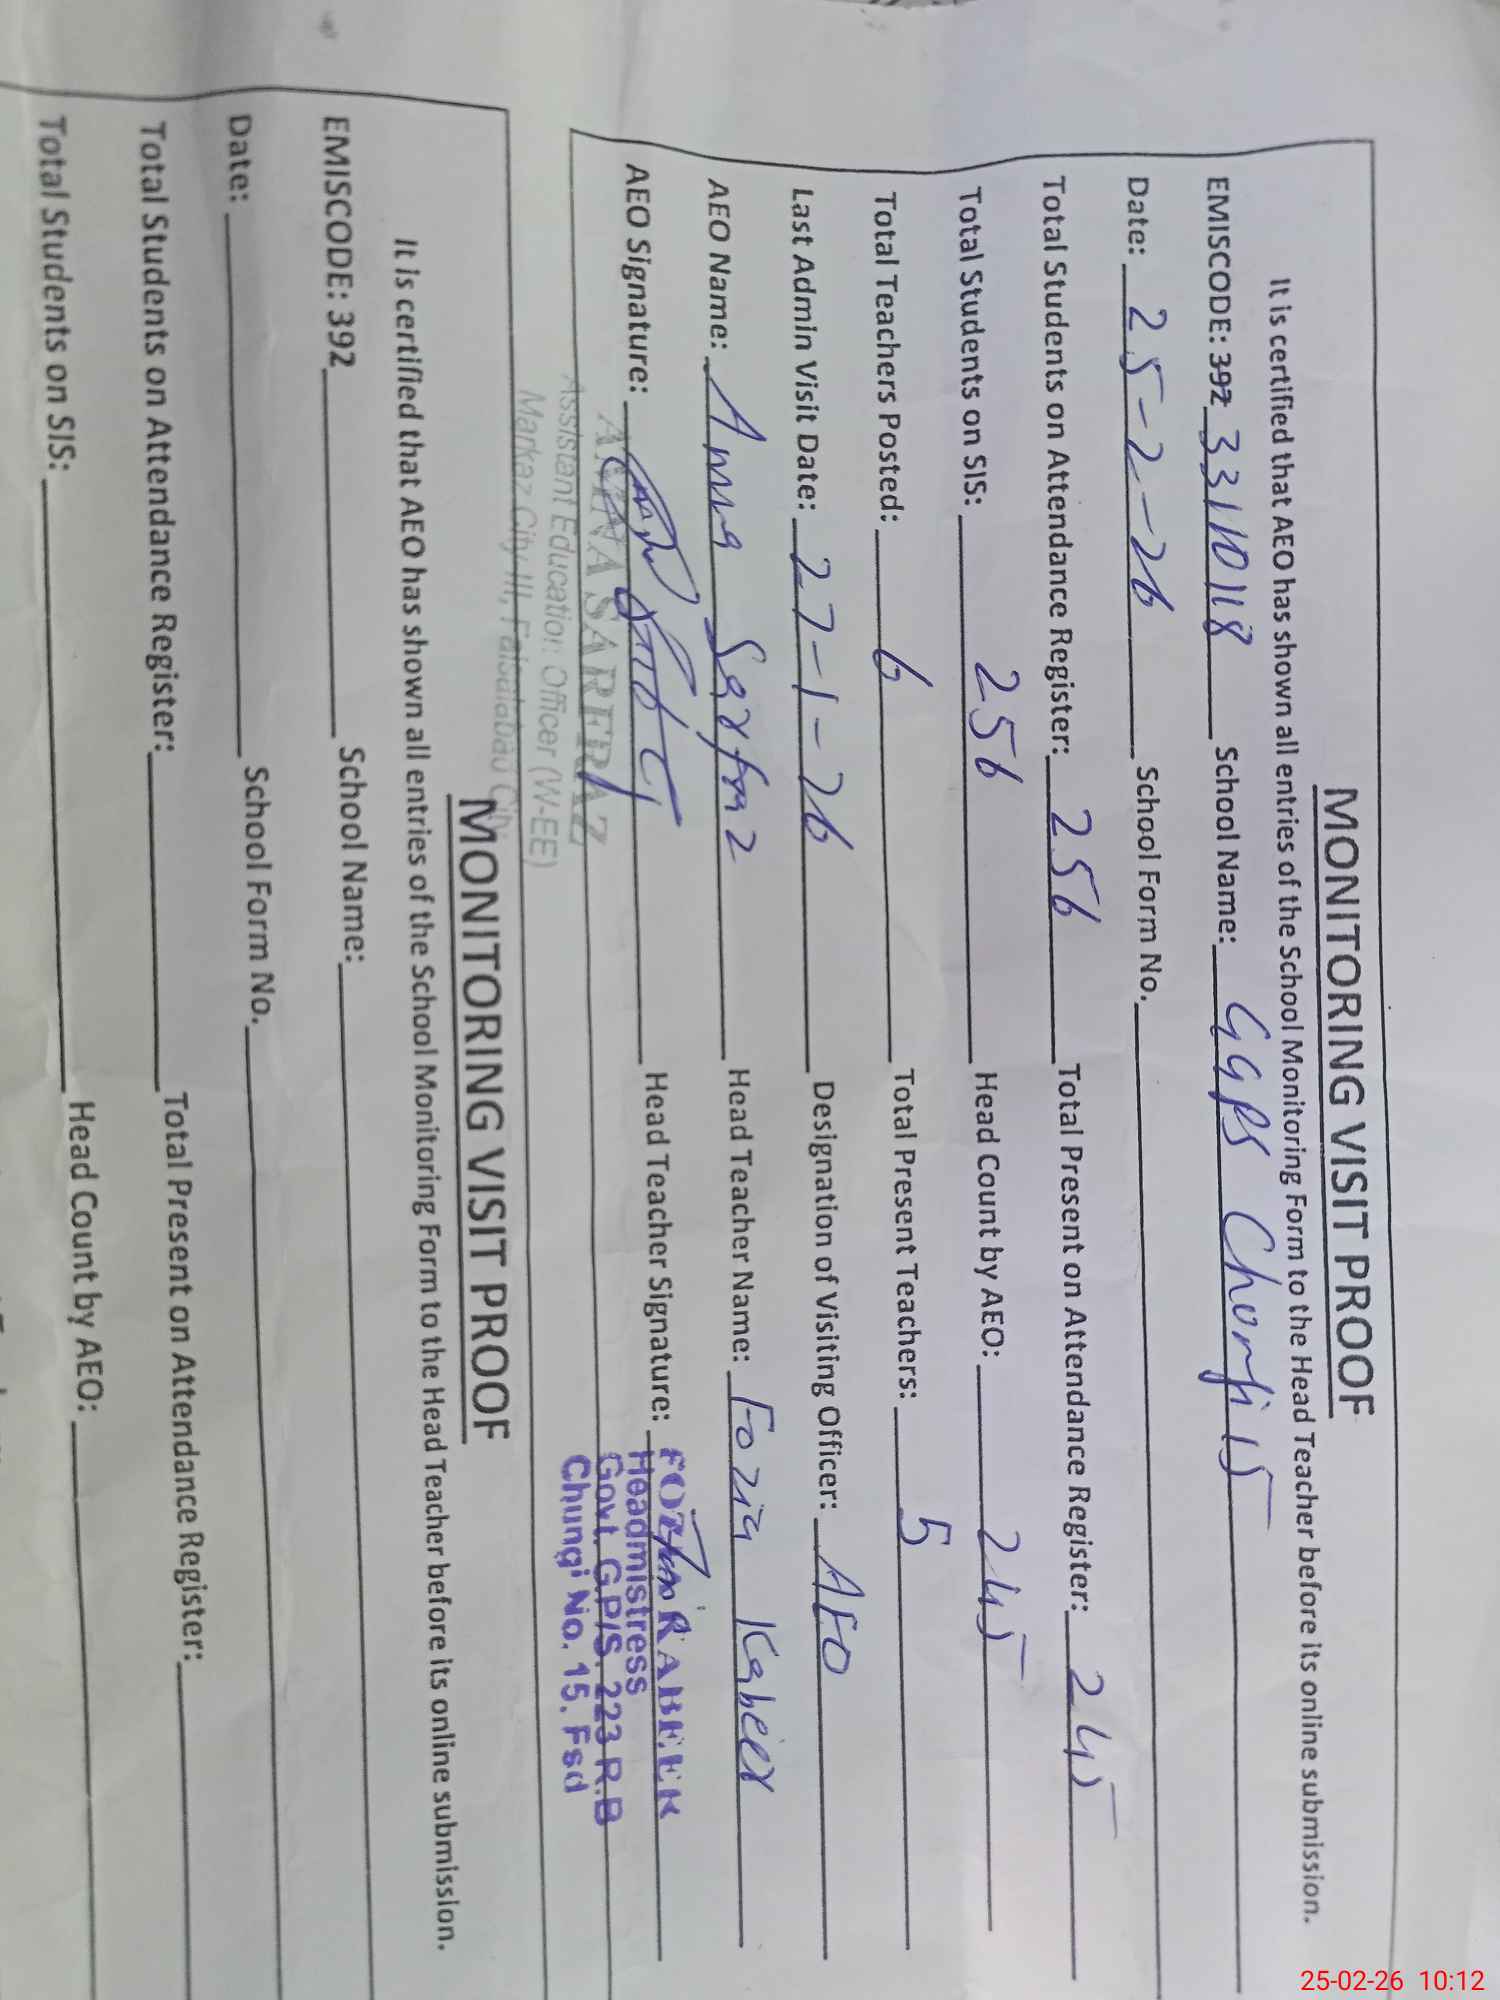 MONITORING VISIT PROOF
It is certified that AEO has shown all entries of the School Monitoring Form to the Head Teacher before its online submission.
EMISCODE: 392 33110118 School Name: GGPS Chungi 15
Date: 25-2-26 School Form No.
Total Students on Attendance Register: 256 Total Present on Attendance Register: 245
Total Students on SIS: 256 Head Count by AEO: 245
Total Teachers Posted: 6 Total Present Teachers: 5
Last Admin Visit Date: 27-1-26 Designation of Visiting Officer: AEO
AEO Name: Amna Sarfraz Head Teacher Name: Fozia Kabeer
AEO Signature: Head Teacher Signature:
AMNA SARFRAZ
Assistant Education Officer (W-EE)
Markaz City III, Faisalabad City
FOZIA KABEER
Headmistress
Govt. G.P/S. 223 R.B
Chungi No. 15. Fsd
MONITORING VISIT PROOF
It is certified that AEO has shown all entries of the School Monitoring Form to the Head Teacher before its online submission.
EMISCODE: 392 School Name:
Date: School Form No.
Total Students on Attendance Register: Total Present on Attendance Register:
Total Students on SIS: Head Count by AEO:
25-02-26 10:12